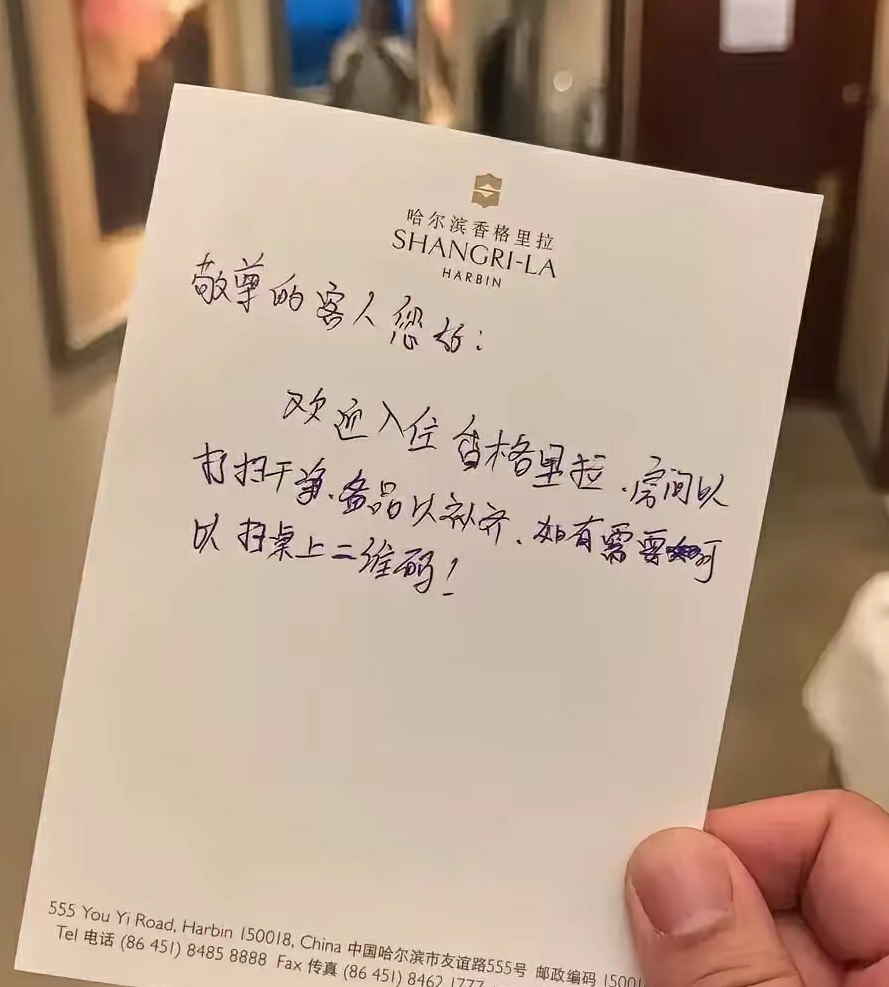 哈尔滨香格里拉
SHANGRI-LA
HARBIN
敬尊的客人您好：
欢迎入住香格里拉.房间以
打扫干净、备品以补齐.如有需要可
以扫桌上二维码！
555 You Yi Road, Harbin 150018, China 中国哈尔滨市友谊路555号 邮政编码 15001
Tel 电话 (86 451) 8485 8888 Fax 传真 (86 451) 8462 1777